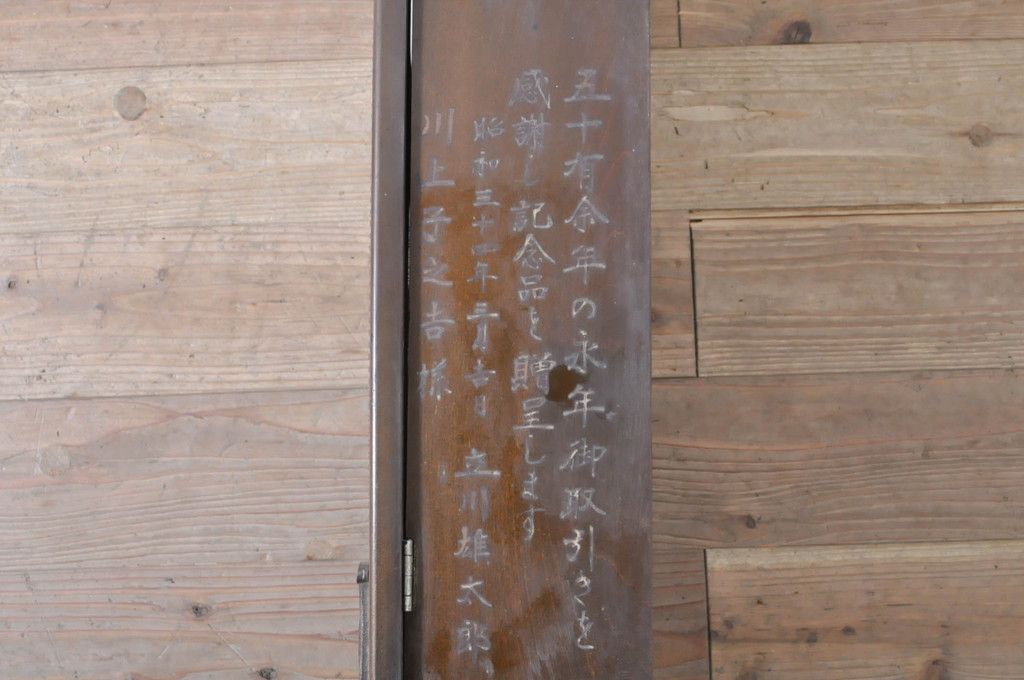 五十有余年の永年御取引きを
感謝し記念品を贈呈します
昭和三十一年三月吉日 立川雄太郎
川上子之吉様